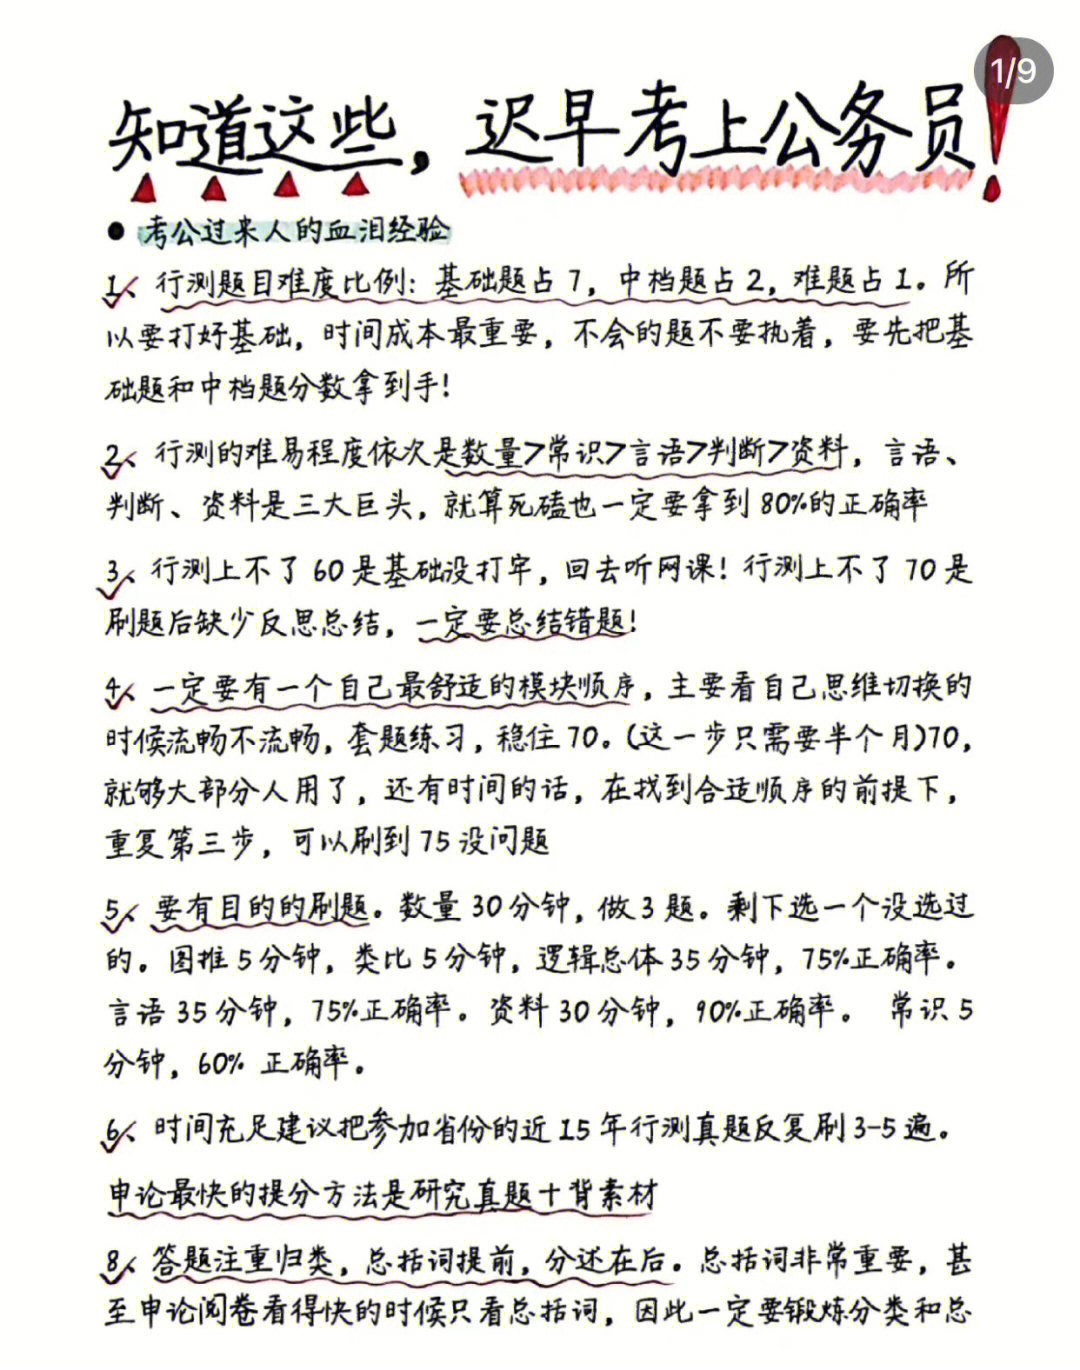 1/9
知道这些，迟早考上公务员！
● 考公过来人的血泪经验
1、行测题目难度比例：基础题占7，中档题占2，难题占1。所
以要打好基础，时间成本最重要，不会的题不要执着，要先把基
础题和中档题分数拿到手！
2、行测的难易程度依次是数量>常识>言语>判断>资料，言语、
判断、资料是三大巨头，就算死磕也一定要拿到80%的正确率
3、行测上不了60是基础没打牢，回去听网课！行测上不了70是
刷题后缺少反思总结，一定要总结错题！
4、一定要有一个自己最舒适的模块顺序，主要看自己思维切换的
时候流畅不流畅，套题练习，稳住70。(这一步只需要半个月)70，
就够大部分人用了，还有时间的话，在找到合适顺序的前提下，
重复第三步，可以刷到75没问题
5、要有目的的刷题。数量30分钟，做3题。剩下选一个没选过
的。图推5分钟，类比5分钟，逻辑总体35分钟，75%正确率。
言语35分钟，75%正确率。资料30分钟，90%正确率。 常识5
分钟，60% 正确率。
6、时间充足建议把参加省份的近15年行测真题反复刷3-5遍。
申论最快的提分方法是研究真题+背素材
8、答题注重归类，总括词提前，分述在后。总括词非常重要，甚
至申论阅卷看得快的时候只看总括词，因此一定要锻炼分类和总